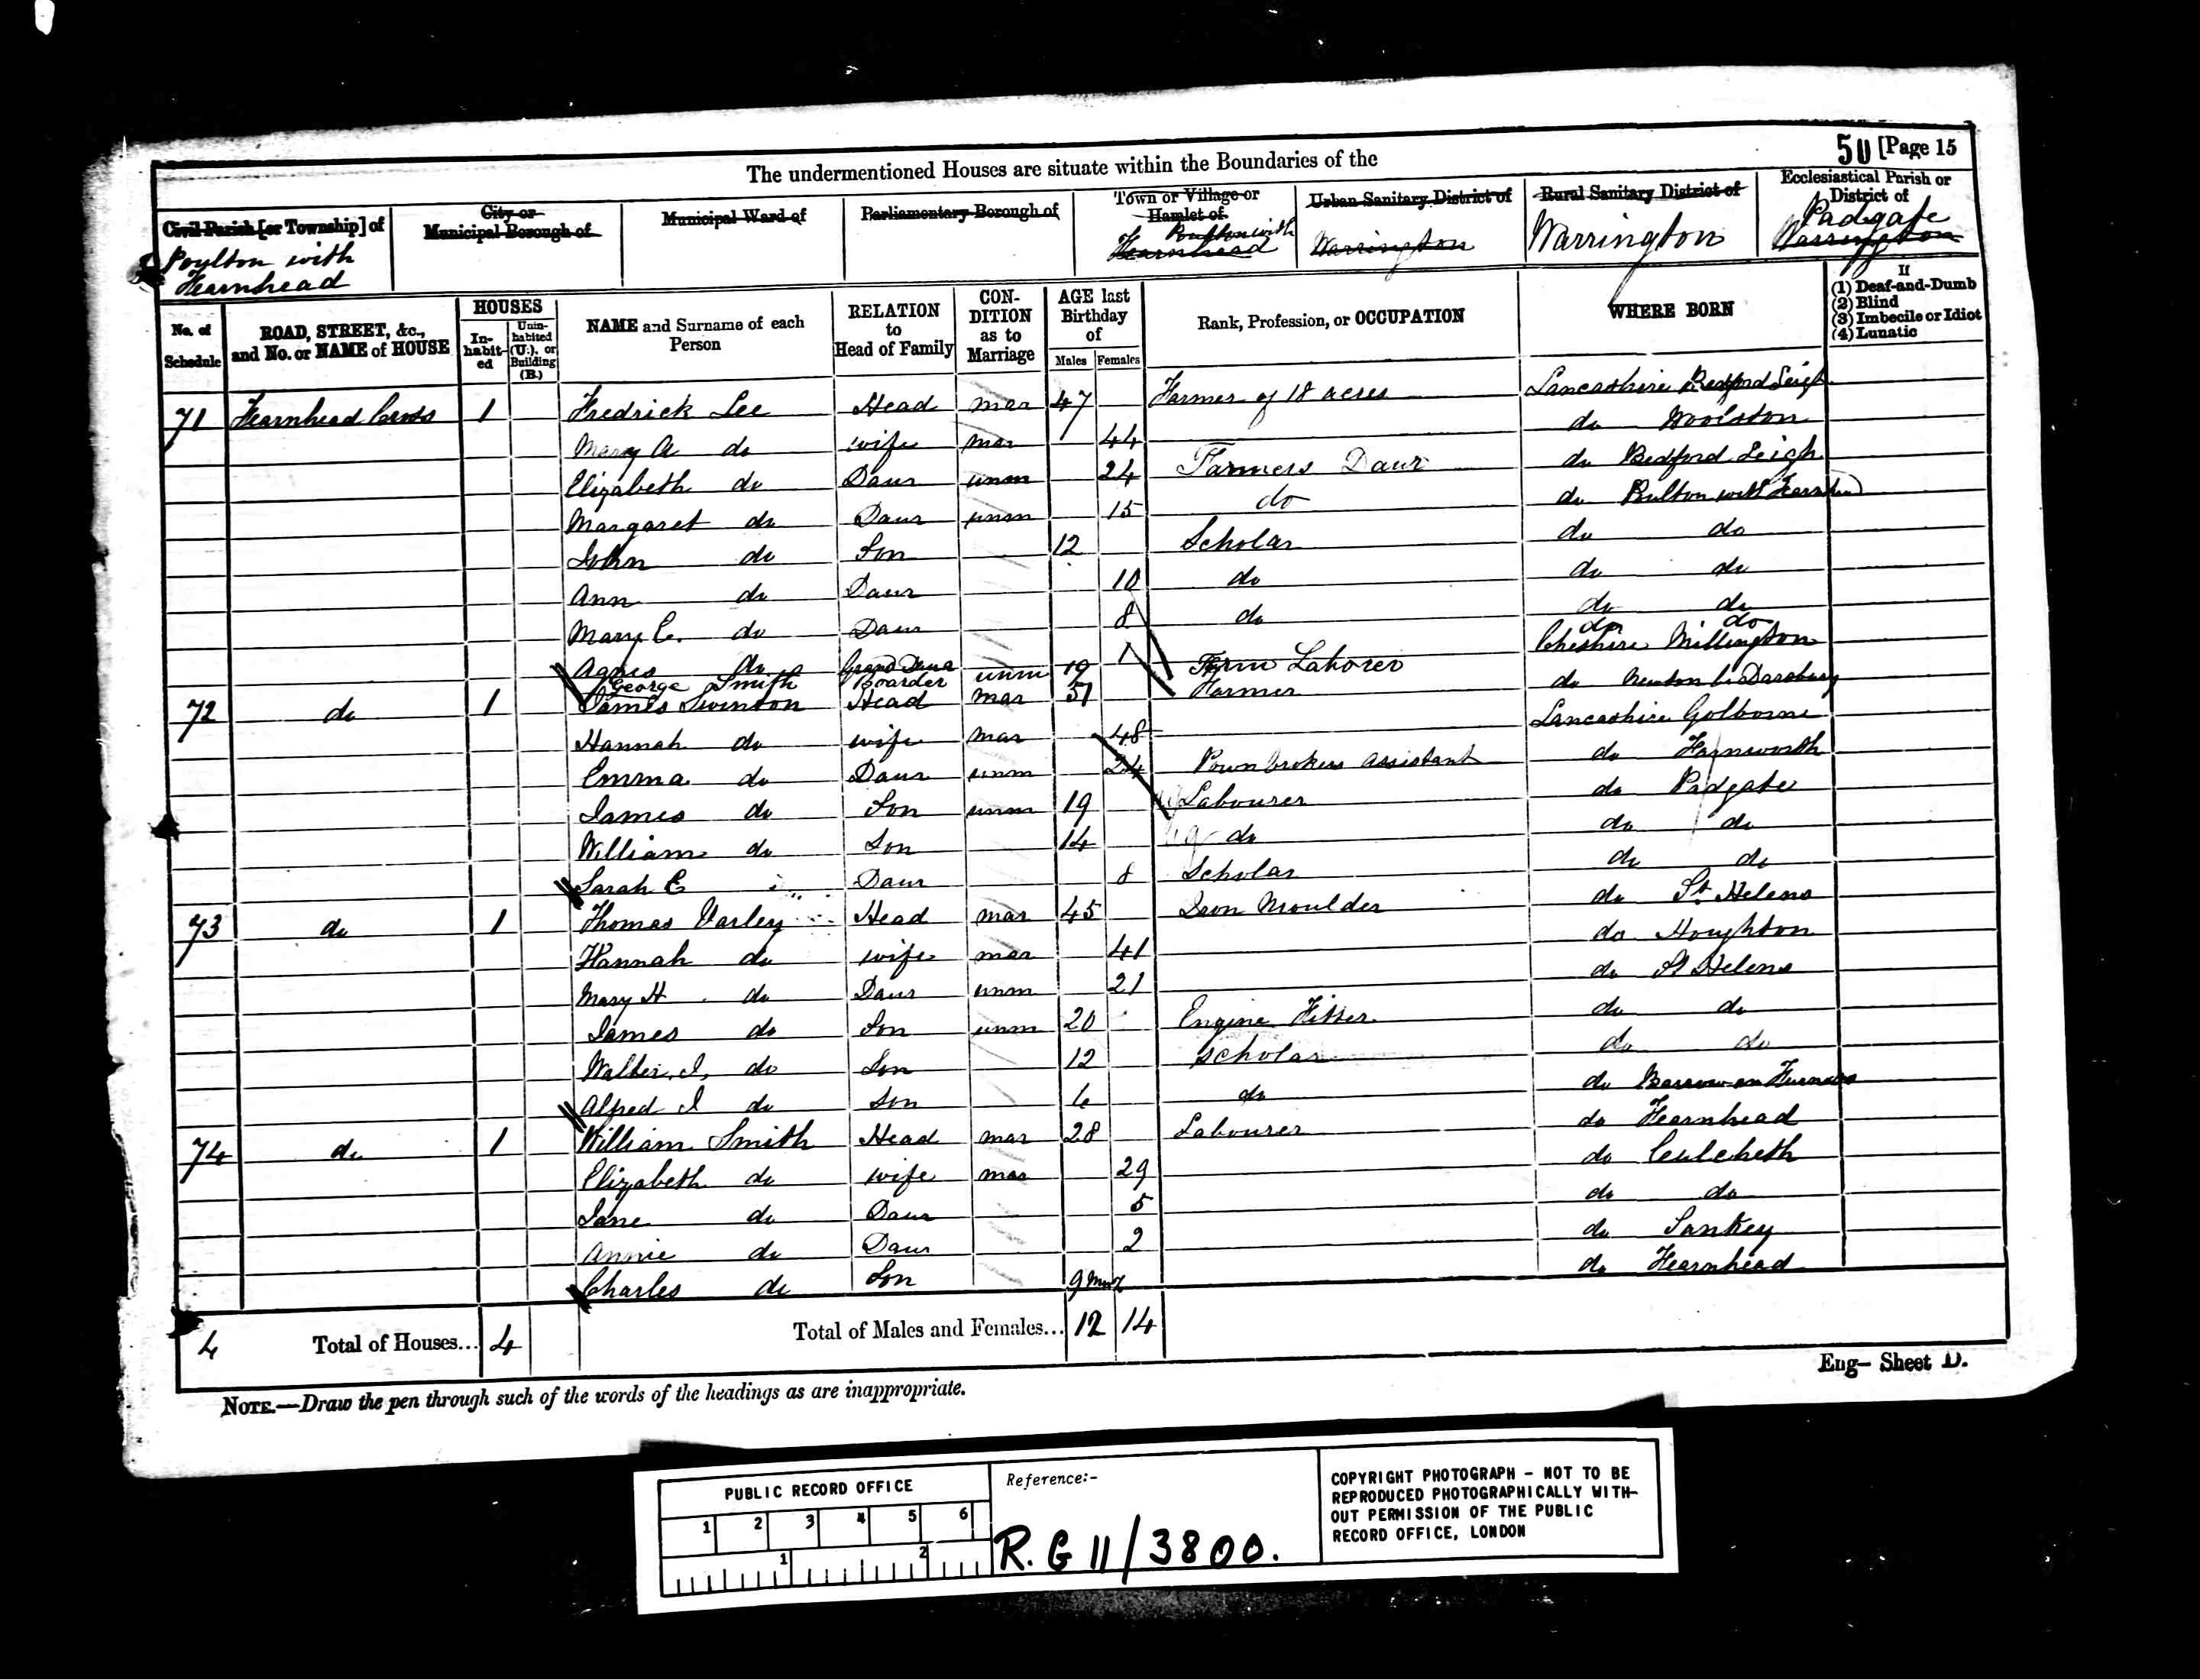 50 [Page 15
The undermentioned Houses are situate within the Boundaries of the
Civil Parish [or Township] of
City or Municipal Borough of
Municipal Ward of
Parliamentary Borough of
Town or Village or Hamlet of
Urban Sanitary District of
Rural Sanitary District of
Ecclesiastical Parish or District of
Poulton with Fearnhead
Poulton with Fearnhead
Warrington
Warrington
Padgate
Warrington
No. of Schedule
ROAD, STREET, &c., and No. or NAME of HOUSE
HOUSES
In-habit-ed
Unin-habited (U.), or Building (B.)
NAME and Surname of each Person
RELATION to Head of Family
CON-DITION as to Marriage
AGE last Birthday of
Males Females
Rank, Profession, or OCCUPATION
WHERE BORN
If
(1) Deaf-and-Dumb
(2) Blind
(3) Imbecile or Idiot
(4) Lunatic
71 Fearnhead Cross 1 Fredrick Lee Head mar 47 Farmer of 18 acres Lancashire Bedford Leigh
Mary A do wife mar 44 do Woolston
Elizabeth do Daur unm 24 Farmers Daur do Bedford Leigh
Margaret do Daur unm 15 do do Poulton with Fearnhead
John do Son 12 Scholar do do
Ann do Daur 10 do do do
Mary E. do Daur 8 do do do
Agnes do Grand Daur 1 do do
George Smith Boarder unm 19 Farm Laborer Cheshire Millington
72 do 1 James Swinton Head mar 51 Farmer do Newton Daresbury
Hannah do wife mar 48 Lancashire Golborne
Emma do Daur unm 24 Pownbrokers assistant do Farnworth
James do Son unm 19 Labourer do Padgate
William do Son 14 do do do
Sarah E Daur 8 Scholar do do
73 do 1 Thomas Varley Head mar 45 Iron Moulder do St Helens
Hannah do wife mar 41 do Houghton
Mary H do Daur unm 21 do St Helens
James do Son unm 20 Engine Fitter do do
Walter J. do Son 12 Scholar do do
Alfred J do Son 6 do do Barrow on Furness
74 do 1 William Smith Head mar 28 Labourer do Fearnhead
Elizabeth do wife mar 29 do Culcheth
Jane do Daur 5 do do
Annie do Daur 2 do Sankey
Charles do Son 9 do Fearnhead
4 Total of Houses... 4 Total of Males and Females... 12 14
Eng— Sheet D.
NOTE.—Draw the pen through such of the words of the headings as are inappropriate.
PUBLIC RECORD OFFICE
1 2 3 4 5 6
1 2
Reference:-
R.G 11/3800.
COPYRIGHT PHOTOGRAPH - NOT TO BE
REPRODUCED PHOTOGRAPHICALLY WITH-
OUT PERMISSION OF THE PUBLIC
RECORD OFFICE, LONDON